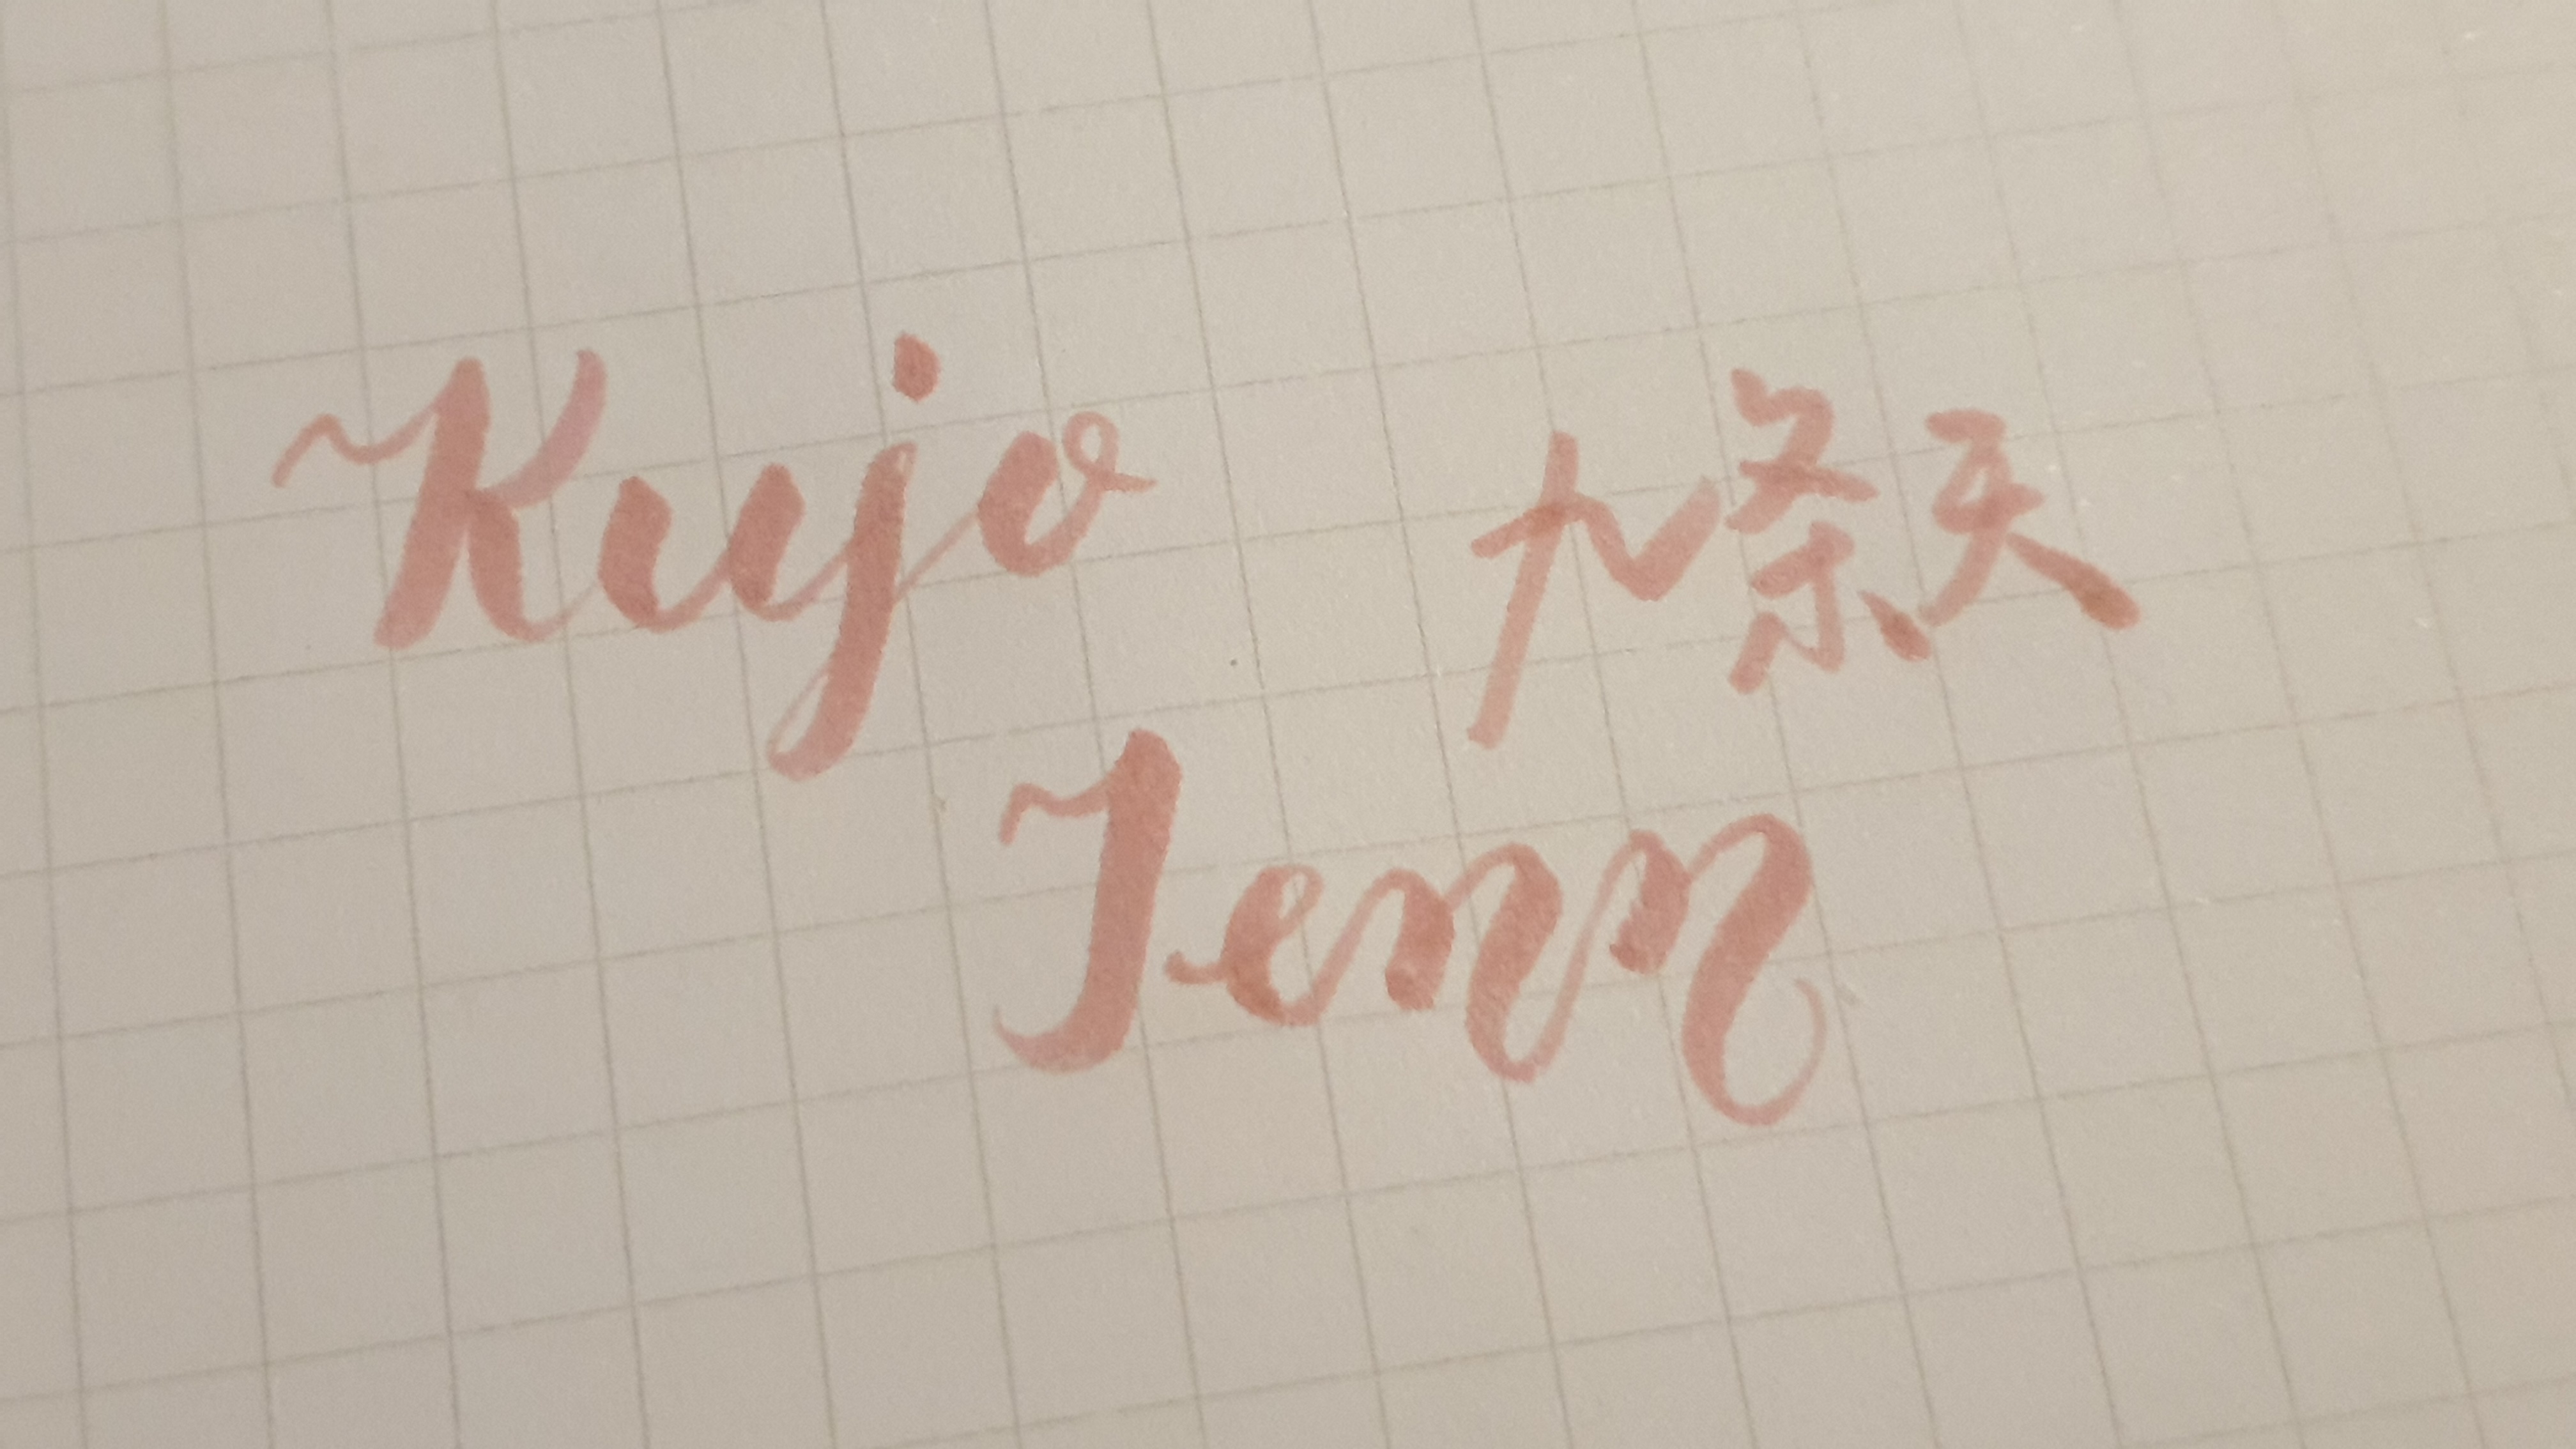 Kujo 九条天
Tenn